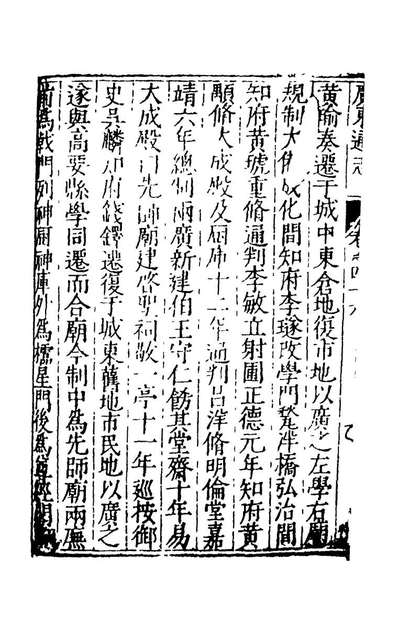 廣東通志 卷之四十六
黃瑜奏遷于城中東倉地復市地以廣之左學右廟
規制大備成化間知府李璲改學門甃泮橋弘治間
知府黃琥重脩通判李敏立射圃正德元年知府黃
顒脩大成殿及廚庫十二年通判呂洋脩明倫堂嘉
靖六年總制兩廣新建伯王守仁餙其堂齋十年易
大成殿曰先師廟建啓聖祠敬一亭十一年巡按御
史吳麟知府錢鐸遷復于城東舊地市民地以廣之
遂與高要縣學同遷而合廟今制中爲先師廟兩廡
前爲戟門列神廚神庫外爲櫺星門後爲尊經閣